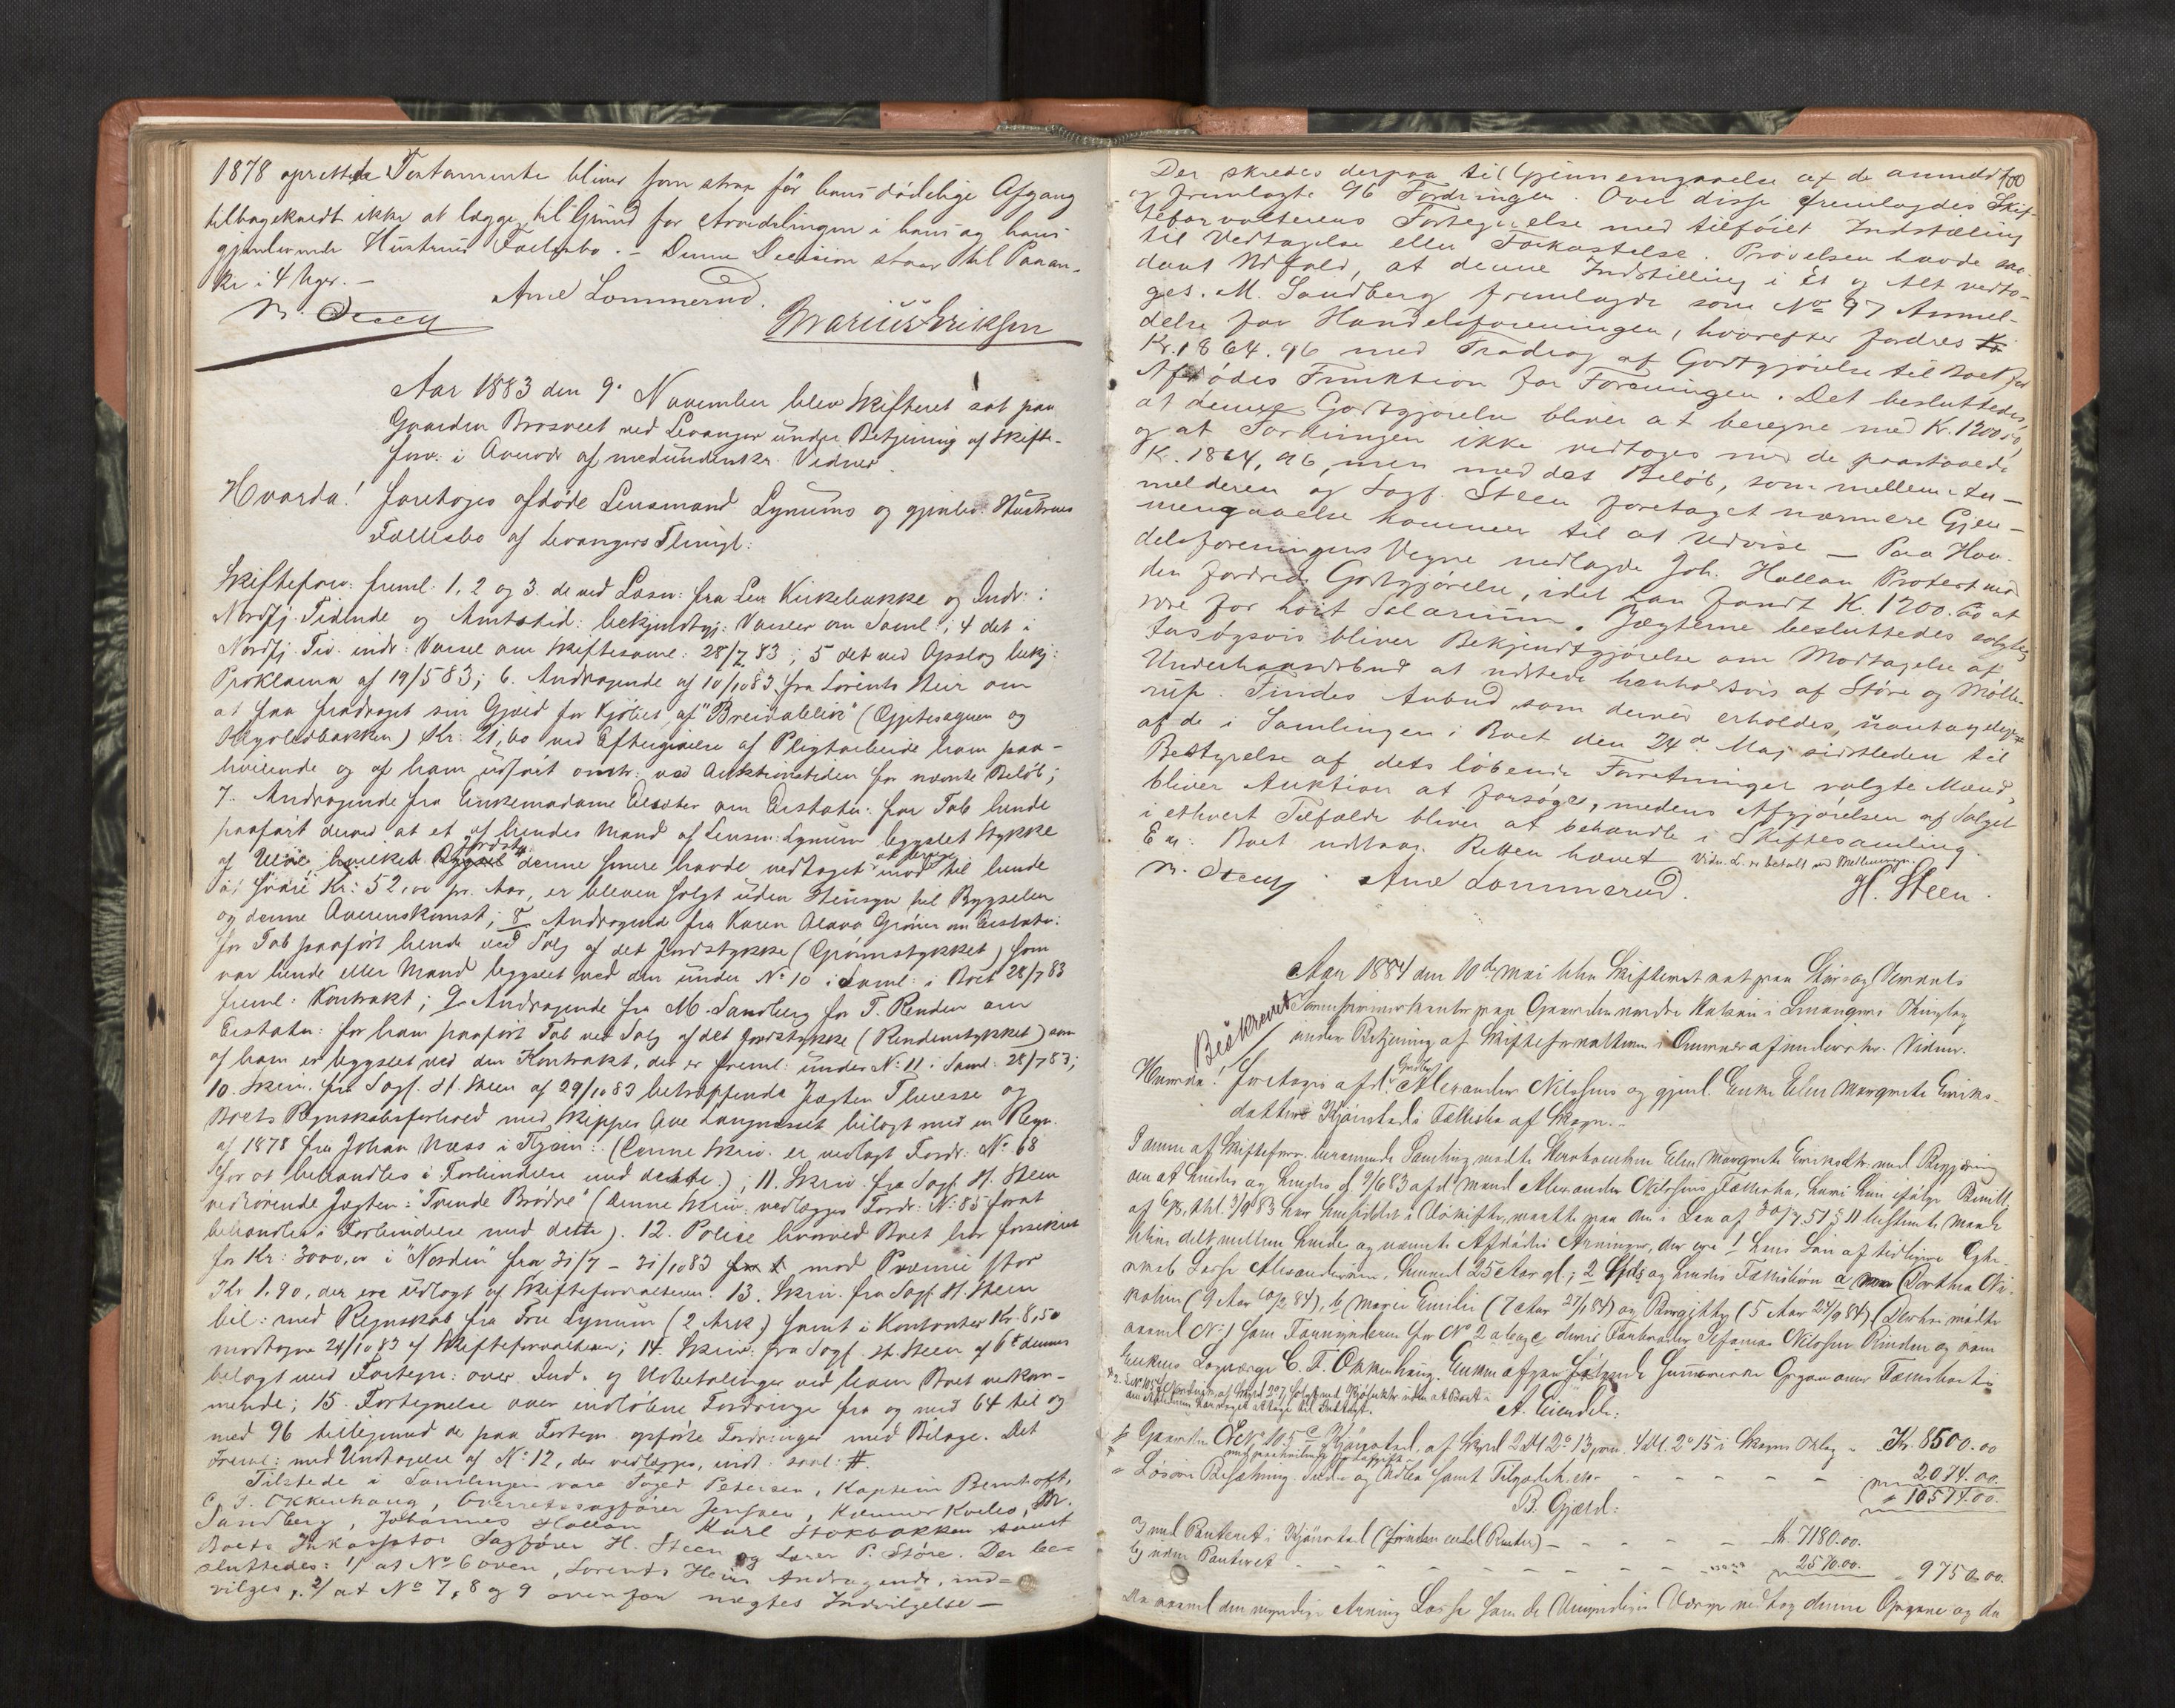 1878 oprettede Testamente bliver som strax før hans dødelige Afgang
tilbagekaldt ikke at lægge til Grund for Arvedelingen i hans og hans
gjenlevende Hustrus Fællesbo. – Denne Decision staar til Paaan-
ke i 4 Uger. –
Arne Lommerud.
Marius Eriksen
Aar 1883 den 9. November blev Skifteret sat paa
Gaarden Brosveet ved Levanger under Betjening af Skifte-
forv. i Overvær af medundertskr. Vidner.
Hvorda! foretoges afdøde Lensmand Lynums og gjenlev. Hustrues
Fællesbo af Levangers Thingl:
Skifteforv: freml. 1, 2 og 3. de ved Læsn: fra Lev. Kirkebakke og Indr: i
Nordtj. Tidende og Amtstid: bekjendtgj: Varsler om Saml; 4 det i
Nordtj. Tid. indr: Varsel om Skiftesaml: 28/7 83; 5 det ved Opslag bekj:
Proklama af 19/5 83; 6. Andragende af 10/10 83 fra Lorents Heir om
at faa fradraget sin Gjæld for Kjøbet af "Breidablik" (
) Kr: 21,60 ved Eftergivelse af Pligtarbeide ham paa-
hvilende og af ham udført omtr. ved Auktionstiden for nævnte Beløb;
7. Andragende fra Enkemadame om Erstatn: for Tab hende
paaført derved at et af hendes Mand af Lensm: Lynum bygslet Stykke
af hvilket Jordst. denne havde vedtaget at mod til hende
at svare Kr: 52,00 pr. Aar, er bleven solgt uden Hensyn til Bygselen
og denne Overenskomst; 8 Andragende fra Karen Olava Grønn om Erstatn:
for Tab paaført hende ved Salg af det Jordstykke (Grønnstykket) som
var hende eller Mand bygslet ved den under No 10 i Saml: i Boet 28/7 83
freml: Kontrakt; 9 Andragende fra M. Sandberg for T. Renden om
Erstatn: for ham paaført Tab ved Salg af det Jordstykke (Rendenstykket) som
af ham er bygslet ved den Kontrakt, der er freml: under No: 11 i Saml: 28/7 83;
10. Skriv. fra Sagf. H. Steen af 29/10 83 betræffende Jægten Therese og
Boets Regnskabsforhold med Skipper Ove bilagt med en Regn.
af 1878 fra Johan Næss i : (Denne Skriv. er vedlagt Fordr: No 68
for at behandles i Forbindelse med dette.); 11. Skriv. fra Sagf. H. Steen
vedrørende Jægten: "Trende Brødre" (denne Skriv: vedlægges Fordr: No: 85 forat
behandles i Forbindelse med dette). 12. Police hvorved Boet har forsikret
for Kr: 3000,00 i "Norden" fra 31/7 – 31/10 83 mod Præmie stor
Kr 1.90, der ere udlagt af Skifteforvalteren. 13. Skriv. fra Sagf. H. Steen
bil: med Regnskab fra Fru Lynum (2 Ark) samt i Kontanter Kr. 8,50
modtagne 24/10 83 af Skifteforvalteren; 14. Skriv: fra Sagf. H. Steen af 6te dennes
bilagt med Fortegn: over Ind- og Udbetalinger ved ham Boet vedkom-
mende; 15. Fortegnelse over indløbne Fordringer fra og med 64 til og
med 96 tilligemed de paa Fortegn. opførte Fordringer med Bilage. Det
Freml: med Undtagelse af No: 12, der vedlægges, indt: saal: #.
Tilstede i Samlingen vare Foged Petersen, Kaptein Bernhoft,
C. F. Okkenhaug, Overretssagfører Jenssen, Kæmner Kvello, M.
Sandberg, Johannes Hallan, Karl Stokbakken samt
Boets Inkassator Sagfører H. Steen og Lærer P. Støre. Der be-
sluttedes: 1/ at No 6 oven, Lorents Heirs Andragende, ind-
vilges, 2/ at No 7, 8 og 9 ovenfor nægtes Indvilgelse –
100
Der skredes derpaa til Gjennemgaaelse af de anmeldte
og fremlagte 96 Fordringer. Over disse fremlagdes Skif-
teforvalterens Fortegnelse med tilføiet Indstilling
til Vedtagelse eller Forkastelse. Prøvelsen havde saa-
dant Udfald, at denne Indstilling i Et og Alt vedto-
ges. M. Sandberg fremlagde som No 97 Anmel-
delse for Handelsforeningen, hvorefter fordres
Kr. 1864.96 med Fradrag af Godtgjørelse til Boet for
Afdødes Funktion for Foreningen. Det besluttedes,
at denne Godtgjørelse bliver at beregne med Kr. 1200,00,
og at Fordringen ikke vedtoges med de paastaaede
K. 1864,96, men med det Beløb, som mellem An-
melderen og Sagf. Steen foretaget nærmere Gjen-
nemgaaelse kommer til at udvise – Paa Han-
delsforeningens Vegne nedlagde Joh. Hallan Protest mod
den fordrede Godtgjørelse, idet han fandt K. 1200.00 at
være for høit Salarium. Jægterne besluttedes solgte,
forsøgsvis bliver Bekjendtgjørelse om Modtagelse af
Underhaandsbud at udstede henholdsvis af Støre og Mølle-
rup. Findes Anbud, som derved erholdes, uantagelige
af de i Samlingen i Boet den 24de Mai sidstleden til
Bestyrelse af dets løbende Forretninger valgte Mænd,
bliver Auktion at forsøges, medens Afgjørelsen af Salget
i ethvert Tilfælde bliver at behandle i Skiftesamling.
Em: Boet udtaas. Retten hævet Vidn. L. er betalt
Arne Lommerud.
H. Steen.
Aar 1884 den 10de Mai blev Skifteret sat paa Stør- og Værdals
Sorenskriverkontor paa Gaarden nordre i Levangers Thinglag
under Betjening af Skifteforvalteren i Overvær af underskr. Vidner.
Beskrevet
Hvorda! foretoges afd. Gaardbr. Alexander Nilssens og gjenl. Enke Elen Margrete Eriks-
datters Kjønstads Fællesbo af Skogn. –
I anm af Skifteforv. berammede Samling mødte Sterboenken Elen Margrete Eriksdtr. med Begjæring
om at hendes og hendes d. 9/6 83 afd. Mand Alexander Nilssens Fællesbo, hvori hun ifølge Bevill.
af 3/9 83 har hensiddet i Uskifte, maatte paa den i Lov af 30/7 51 § 11 bestemte Maade
blive delt mellem hende og nævnte Afdødes Arvinger, der ere 1 hans Søn af tidligere Egte-
skab Lasse Alexandersen, henved 25 Aar gl.; 2 Hds og hendes Fællesbørn a Dorthea Ni-
koline (9 Aar 10/2 84), b Marie Emilie (7 Aar 27/1 84) og Birgitte (5 Aar 24/9 84) (Derhos mødte
som Formynderen for No 2 a, b og c deres Farbroder Stefanus Nilssen Rinden og som
Enkens Lagværge C. F. Okkenhaug. Enken afgav følgende Summariske Opgave over Fællesboets
A. Eiendele:
Gaarden Kjønstad, af Skyld 2 Dl. 2 13, 4 Dl. 2 15 i Skogns Thlag – Kr. 8500.00
Løsøre Besætning samt Tilgodeh. – 2074.00
10574.00
B. Gjæld:
a) med Panteret i Kjønstad – Kr. 7180.00.
b) uden Panteret – 2570.00. 9750.00.
Da saavel den myndige Arving Lasse som de Umyndiges Værge vedtog denne Opgave og da